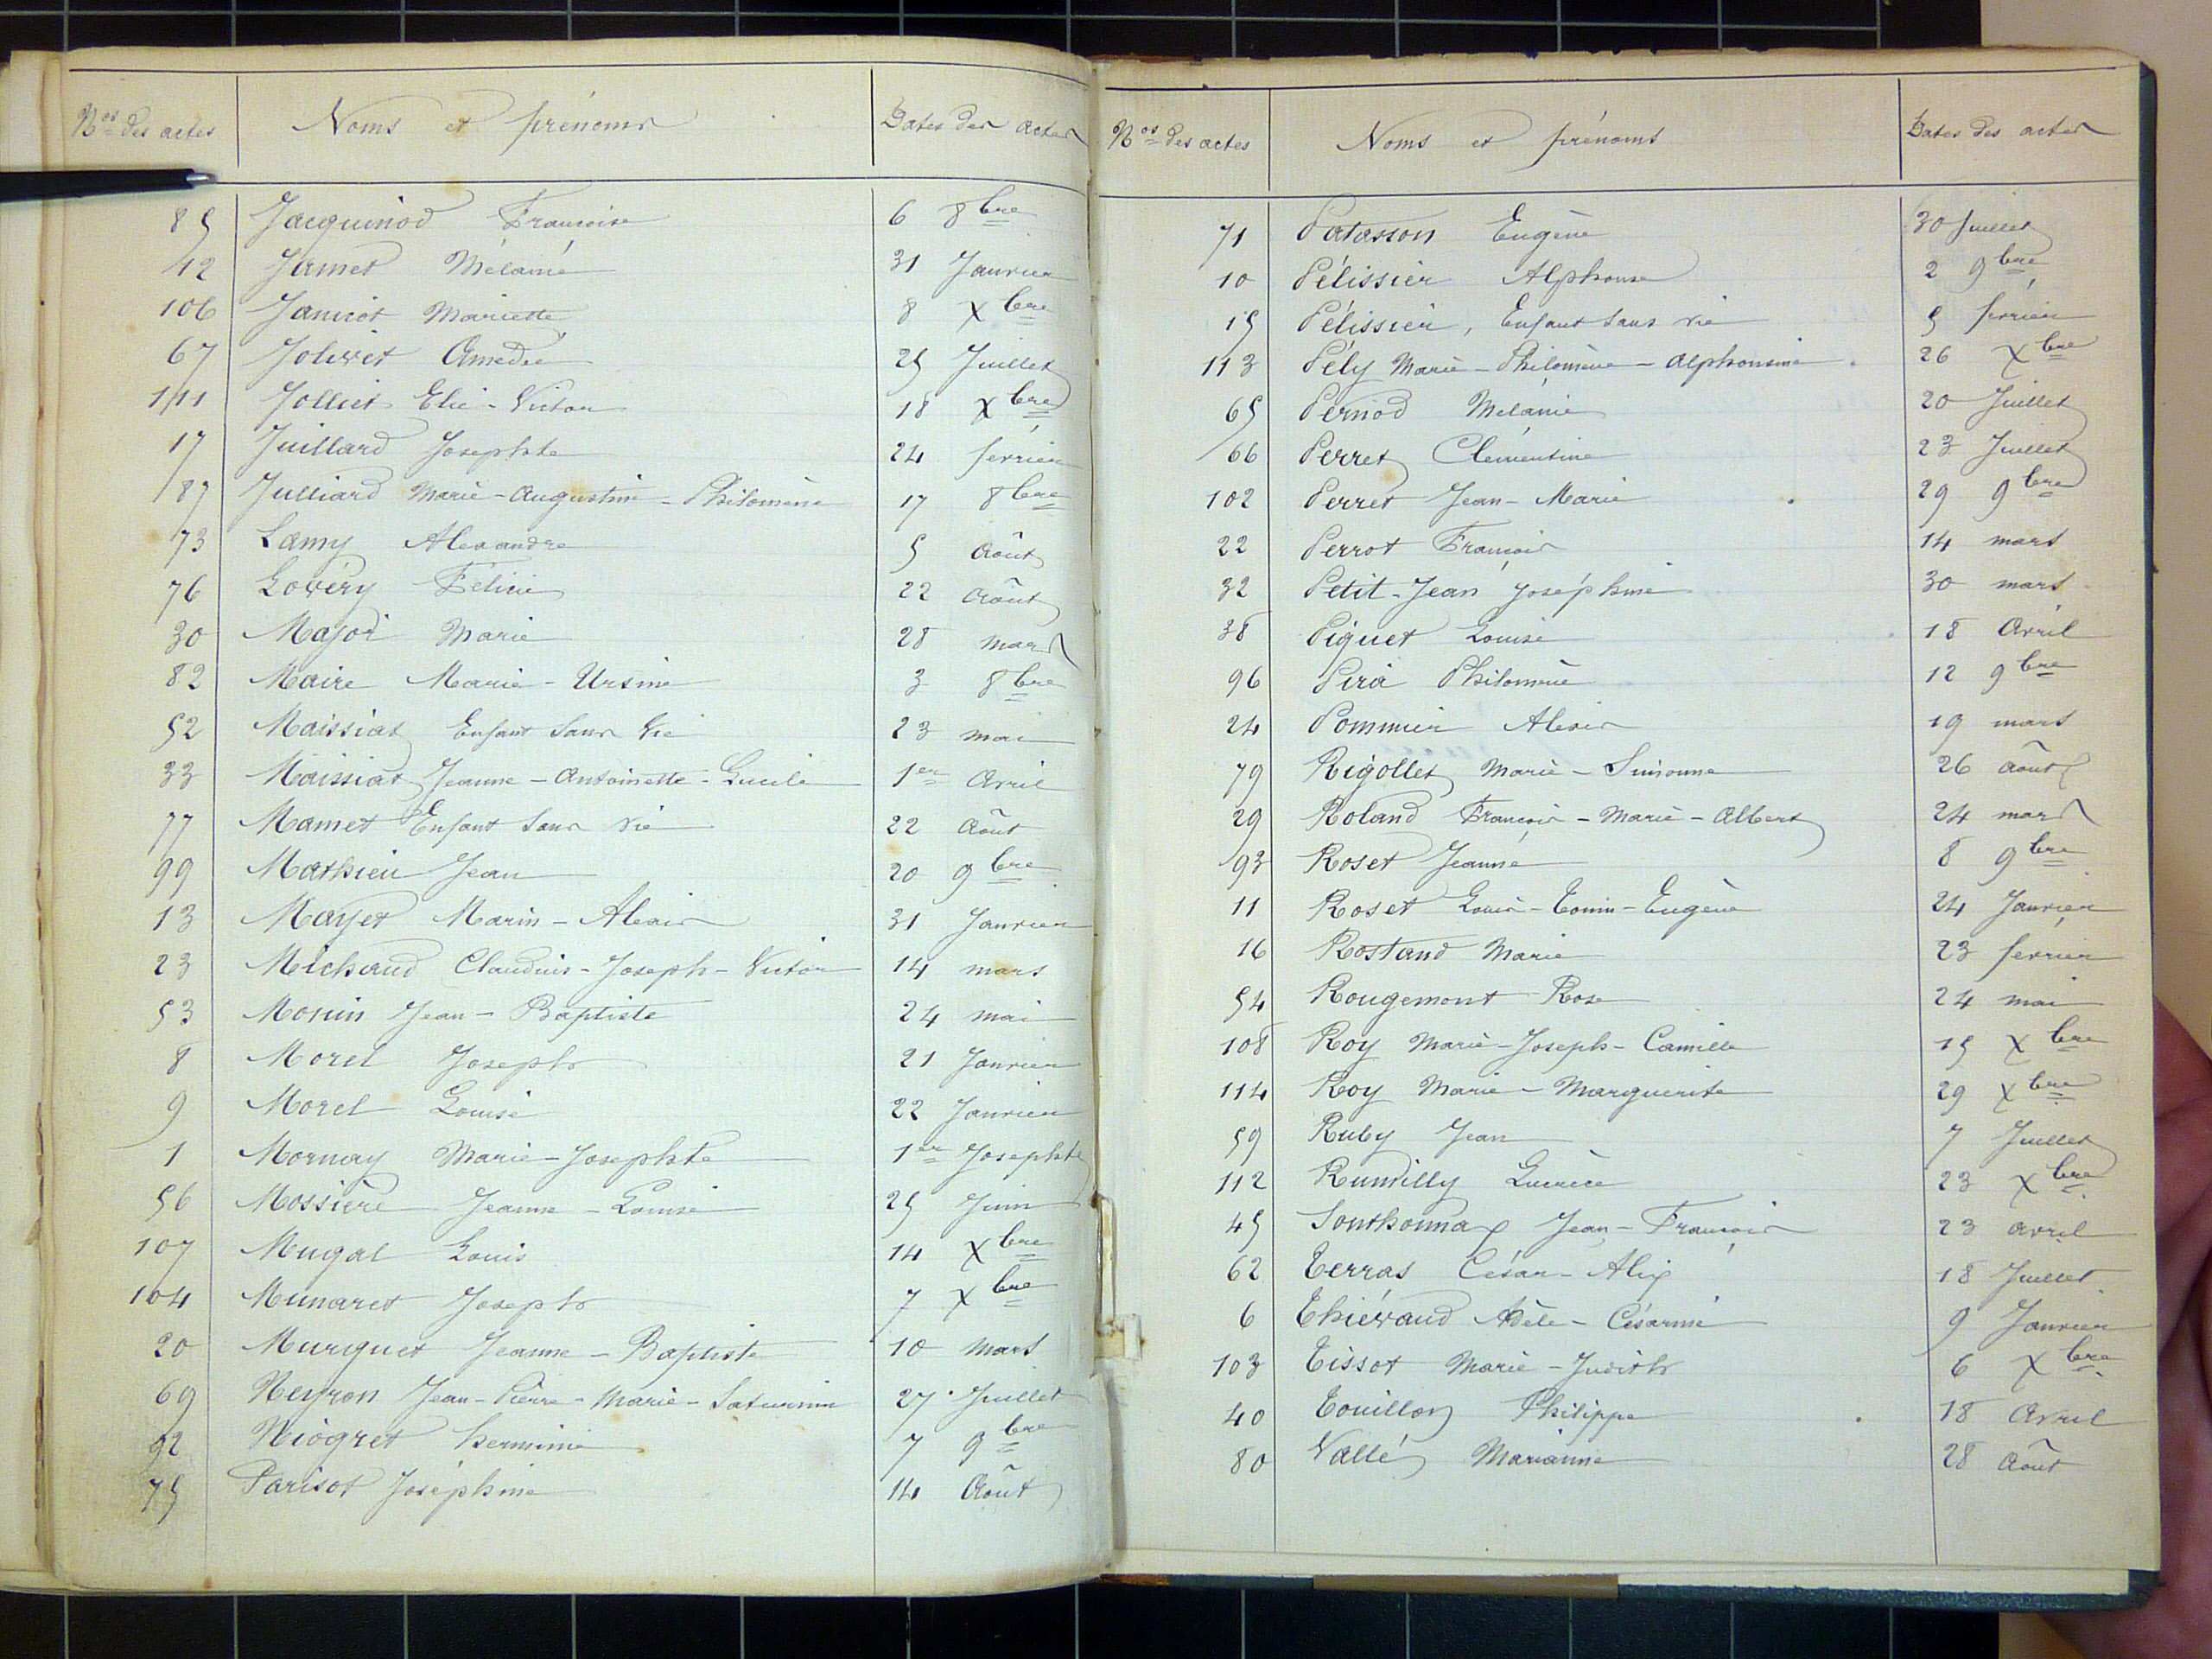 Nos des actes Noms et prénoms Dates des actes
85 Jacquinod Françoise 6 8bre
42 Jamet Mélanie 31 Janvier
106 Janicot Mariette 8 Xbre
67 Jolivet Amédée 25 Juillet
111 Jolliet Elie - Victor 18 Xbre
17 Juillard Josephte 24 février
87 Julliard Marie - Augustine - Philomène 17 8bre
73 Lamy Alexandre 5 Août
76 Lovéry Félicie 22 Août
30 Major Marie 28 mars
82 Maire Marie - Ursine 3 8bre
52 Maissiat Enfant Sans Vie 23 mai
33 Maissiat Jeanne - Antoinette - Lucile 1er Avril
77 Mamet Enfant Sans vie 22 Août
99 Mathieu Jean 20 9bre
13 Mayet Marin - Alexis 31 Janvier
23 Michaud Claudius - Joseph - Victor 14 mars
53 Monin Jean - Baptiste 24 mai
8 Morel Joseph 21 Janvier
9 Morel Louise 22 Janvier
1 Mornay Marie - Josephte 1er Josephte
56 Mossière Jeanne - Louise 25 Juin
107 Mugal Louis 14 Xbre
104 Munaret Joseph 7 Xbre
20 Murquet Jeanne - Baptiste 10 mars
69 Neyron Jean - Pierre - Marie - Saturnin 27 Juillet
92 Niogret herminie 7 9bre
75 Parisot Joséphine 14 Août
Nos des actes Noms et prénoms Dates des actes
71 Patasson Eugène 30 Juillet
10 Pélissier Alphonse 2 9bre
15 Pélissier, Enfant sans vie 5 février
113 Pély Marie - Philomène - Alphonsine 26 Xbre
65 Pernod Mélanie 20 Juillet
66 Perret Clémentine 23 Juillet
102 Perret Jean - Marie 29 9bre
22 Perrot François 14 mars
32 Petit - Jean Joséphine 30 mars
38 Piquet Louise 18 Avril
96 Pira Philomène 12 9bre
24 Pommier Alexis 19 mars
79 Rigollet Marie - Simonne 26 Août
29 Roland François - Marie - Albert 24 mars
93 Roset Jeanne 8 9bre
11 Roset Louis - Tonin - Eugène 24 Janvier
16 Rostand Marie 23 février
54 Rougemont Rose 24 mai
108 Roy Marie - Joseph - Camille 15 Xbre
114 Roy Marie - Marguerite 29 Xbre
59 Ruby Jean 7 Juillet
112 Rumilly Lucrèce 23 Xbre
45 Southonnax Jean - François 23 avril
62 Terras César - Alix 18 Juillet
6 Thiévaud Adèle - Césarine 9 Janvier
103 Tissot Marie - Judith 6 Xbre
40 Touillon Philippe 18 Avril
80 Vallé Marianne 28 Août